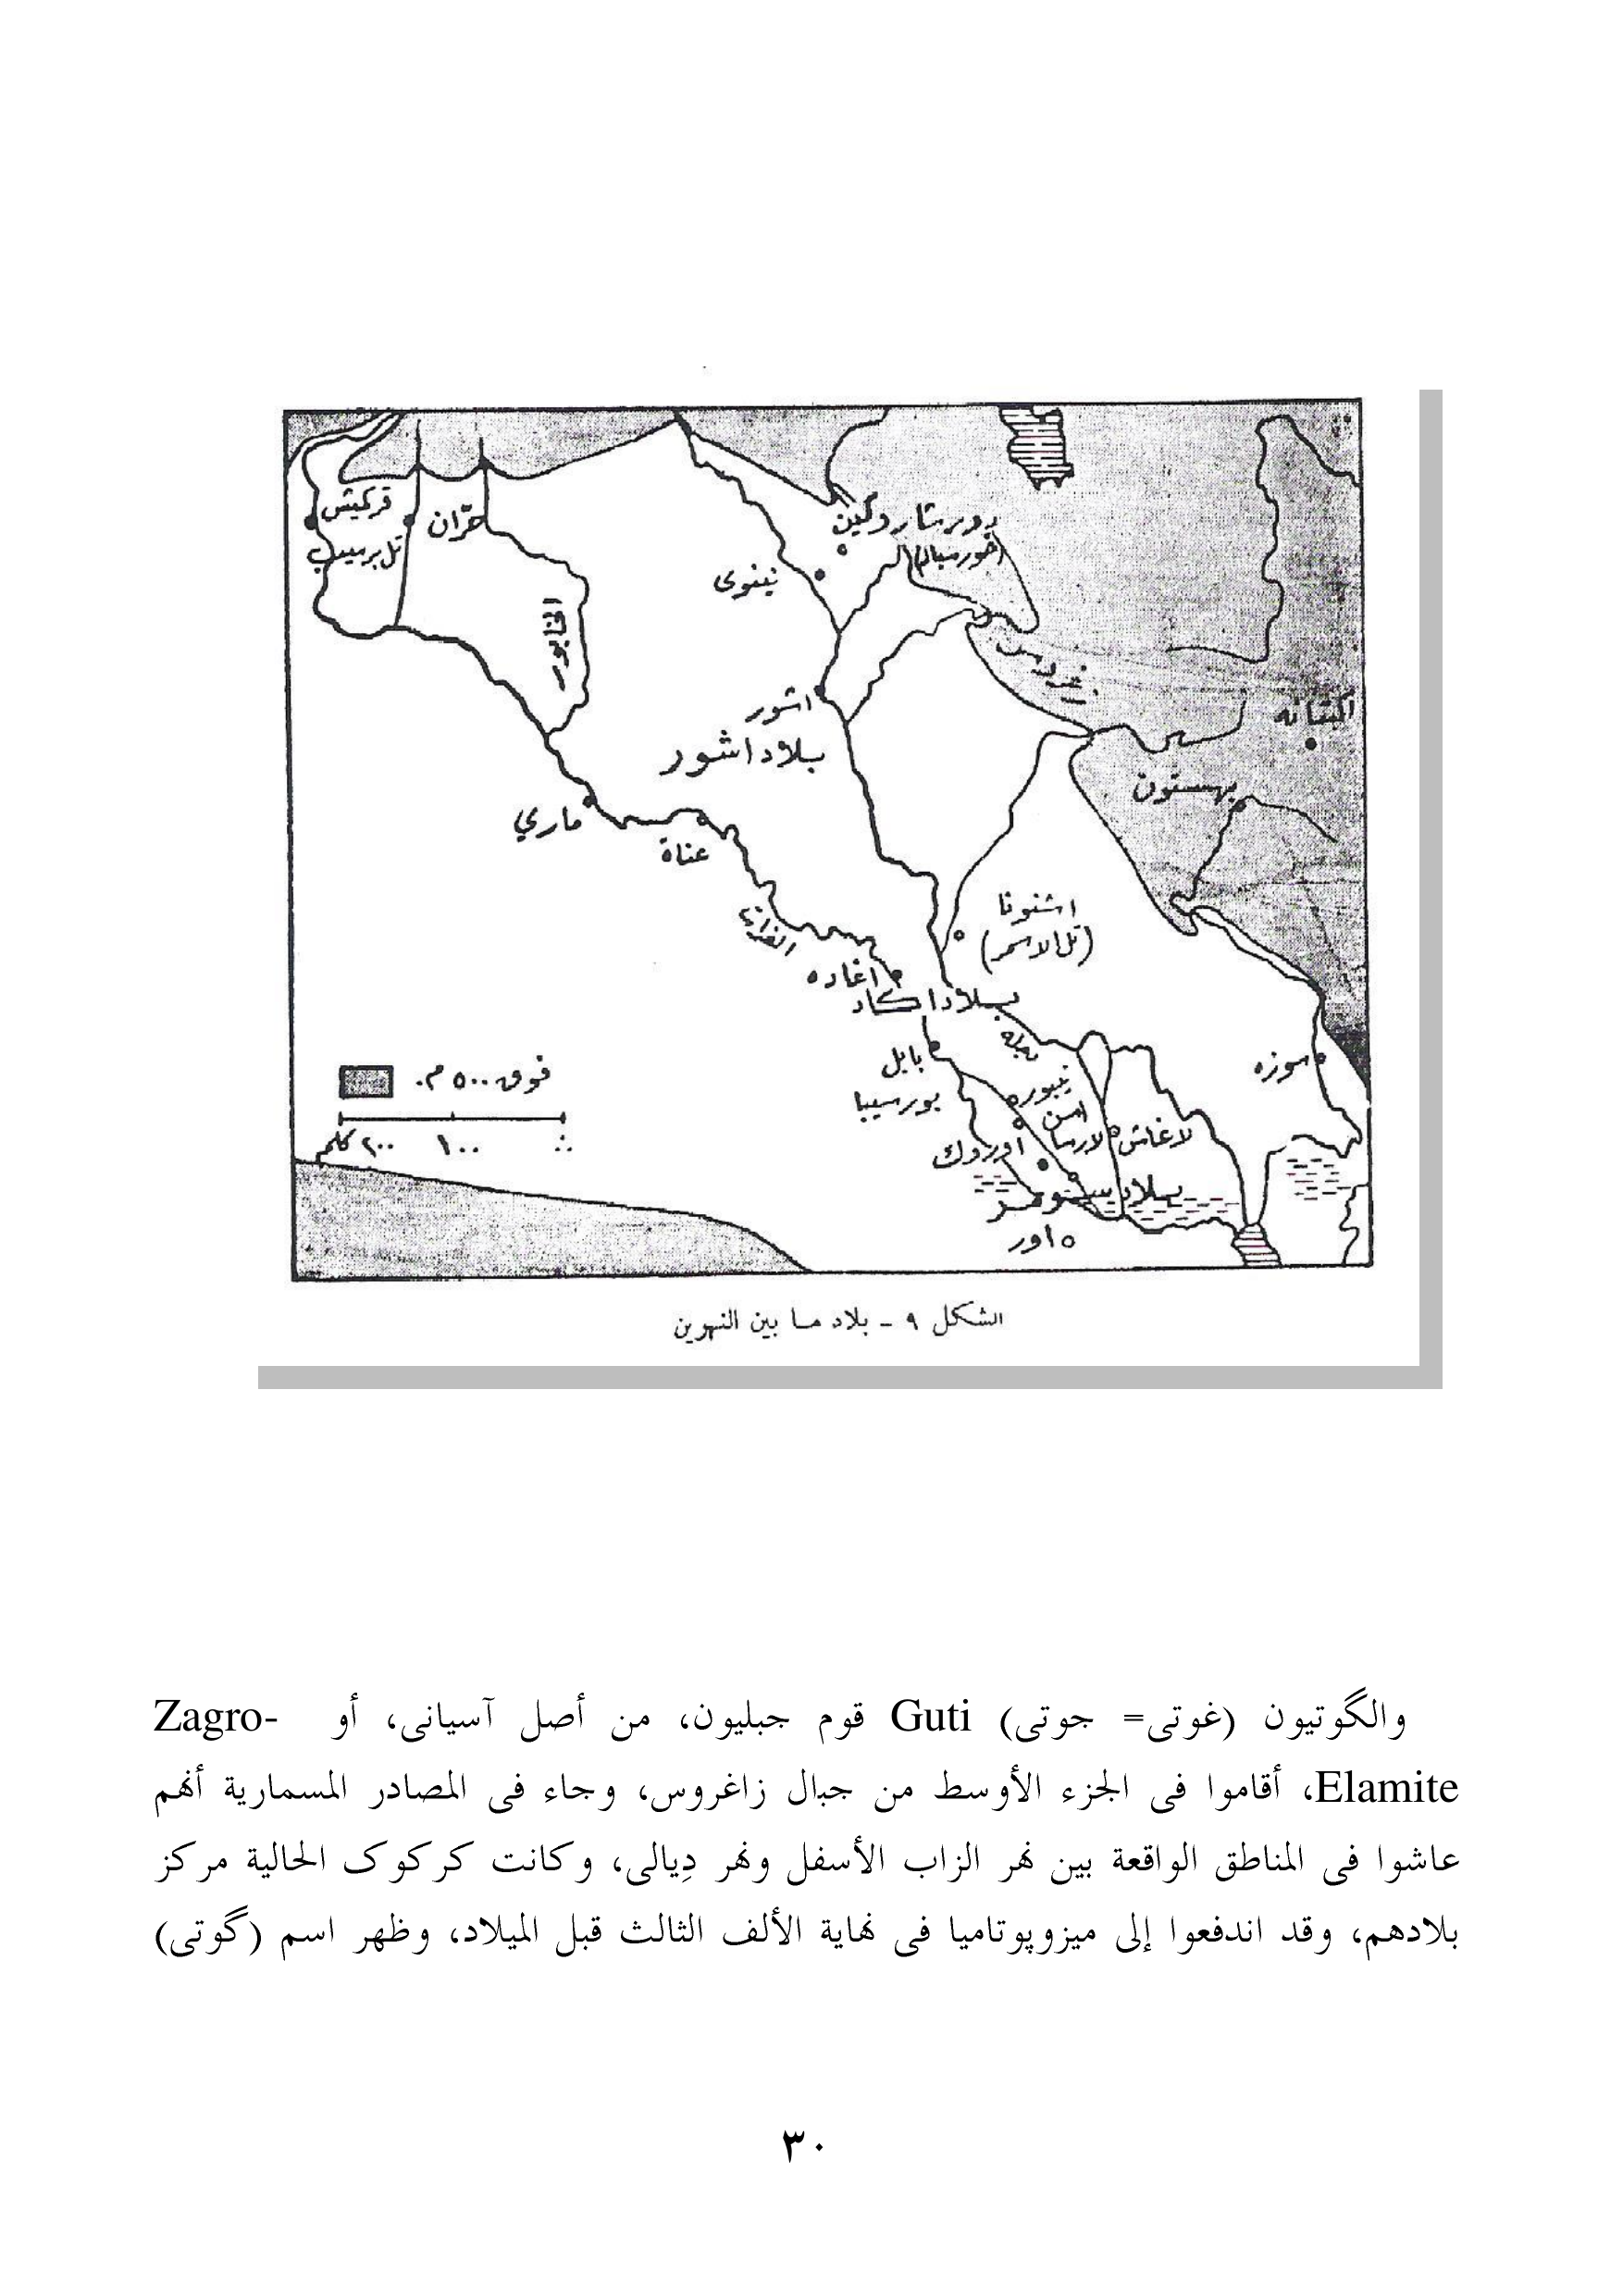 قركميش
تل برسيب
حرّان
دور شاروكين
نينوى
الخابور
اشور
بلاد اشور
اكبتانه
بهستون
ماري
عناة
اشنونا
(تل الاسمر)
اغاده
بلاد اكاد
دجلة
بابل
بورسيبا
نيبور
لاغاش
لارسا
اوروك
سوزه
بلاد سومر
اور
فوق ٥٠٠ م.
١٠٠ ٢٠٠ كلم
الشكل ٩ – بلاد ما بين النهرين
والگوتيون (غوتى= جوتى) Guti قوم جبليون، من أصل آسيانى، أو Zagro-
Elamite، أقاموا فى الجزء الأوسط من جبال زاغروس، وجاء فى المصادر المسمارية أنهم
عاشوا فى المناطق الواقعة بين نهر الزاب الأسفل ونهر دِيالى، وكانت كركوک الحالية مركز
بلادهم، وقد اندفعوا إلى ميزوپوتاميا فى نهاية الألف الثالث قبل الميلاد، وظهر اسم (گوتى)
٣٠